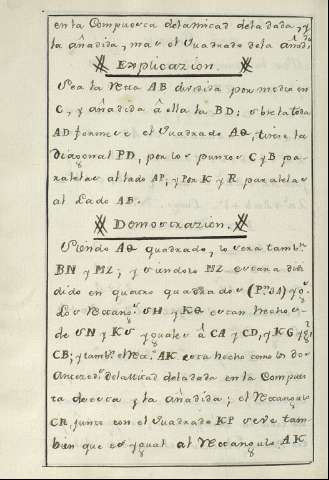 en la Compuesca dela mitad dela dada, y
la añadida, mas el Quadrado dela añad.da
Explicazion.
Sea la recta AB dividida por medio en
C, y añadida â ella la BD; sobre la toda
AD formese el Quadrado AQ, tirese la
Diagonal PD, por los puntos C y B pa-
ralelas al lado AP, y por K y R paralelas
al Lado AB.
Demostrazion.
Siendo AQ quadrado, lo sera tamb.n
BN y MZ; y siendolo MZ estara divi
dido en quatro quadrados
SH y KQ estan hechos
de SN y KS yguales â CA y CD, y KG
CB; y tamb.n el Rec.o AK esta hecho como los dos
Anteced.s dela mitad dela dada en la Compues
ta de esta y la añadida; el Rectangulo
CR junto con el Quadrado KP se ve tam-
bien que es ygual al Rectangulo AK